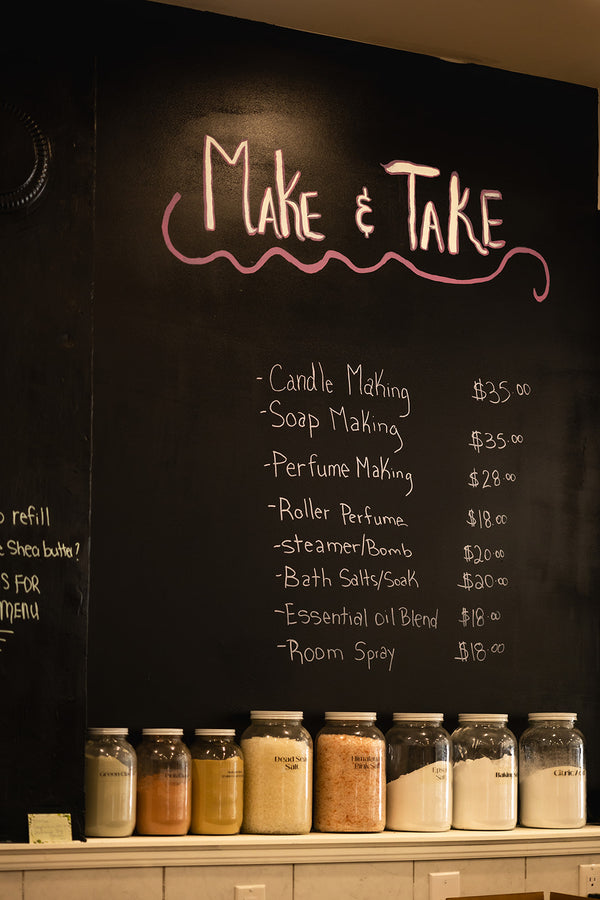 Make & Take
-Candle Making $35.00
-Soap Making $35.00
-Perfume Making $28.00
-Roller Perfume $18.00
-steamer/Bomb $20.00
-Bath Salts/Soak $20.00
-Essential oil Blend $18.00
-Room Spray $18.00
refill
Shea butter?
FOR
MENU
Green Clay
Pink Clay
Dead Sea
Salt
Himalayan
Pink Salt
Epsom
Salt
Baking
Citric Acid